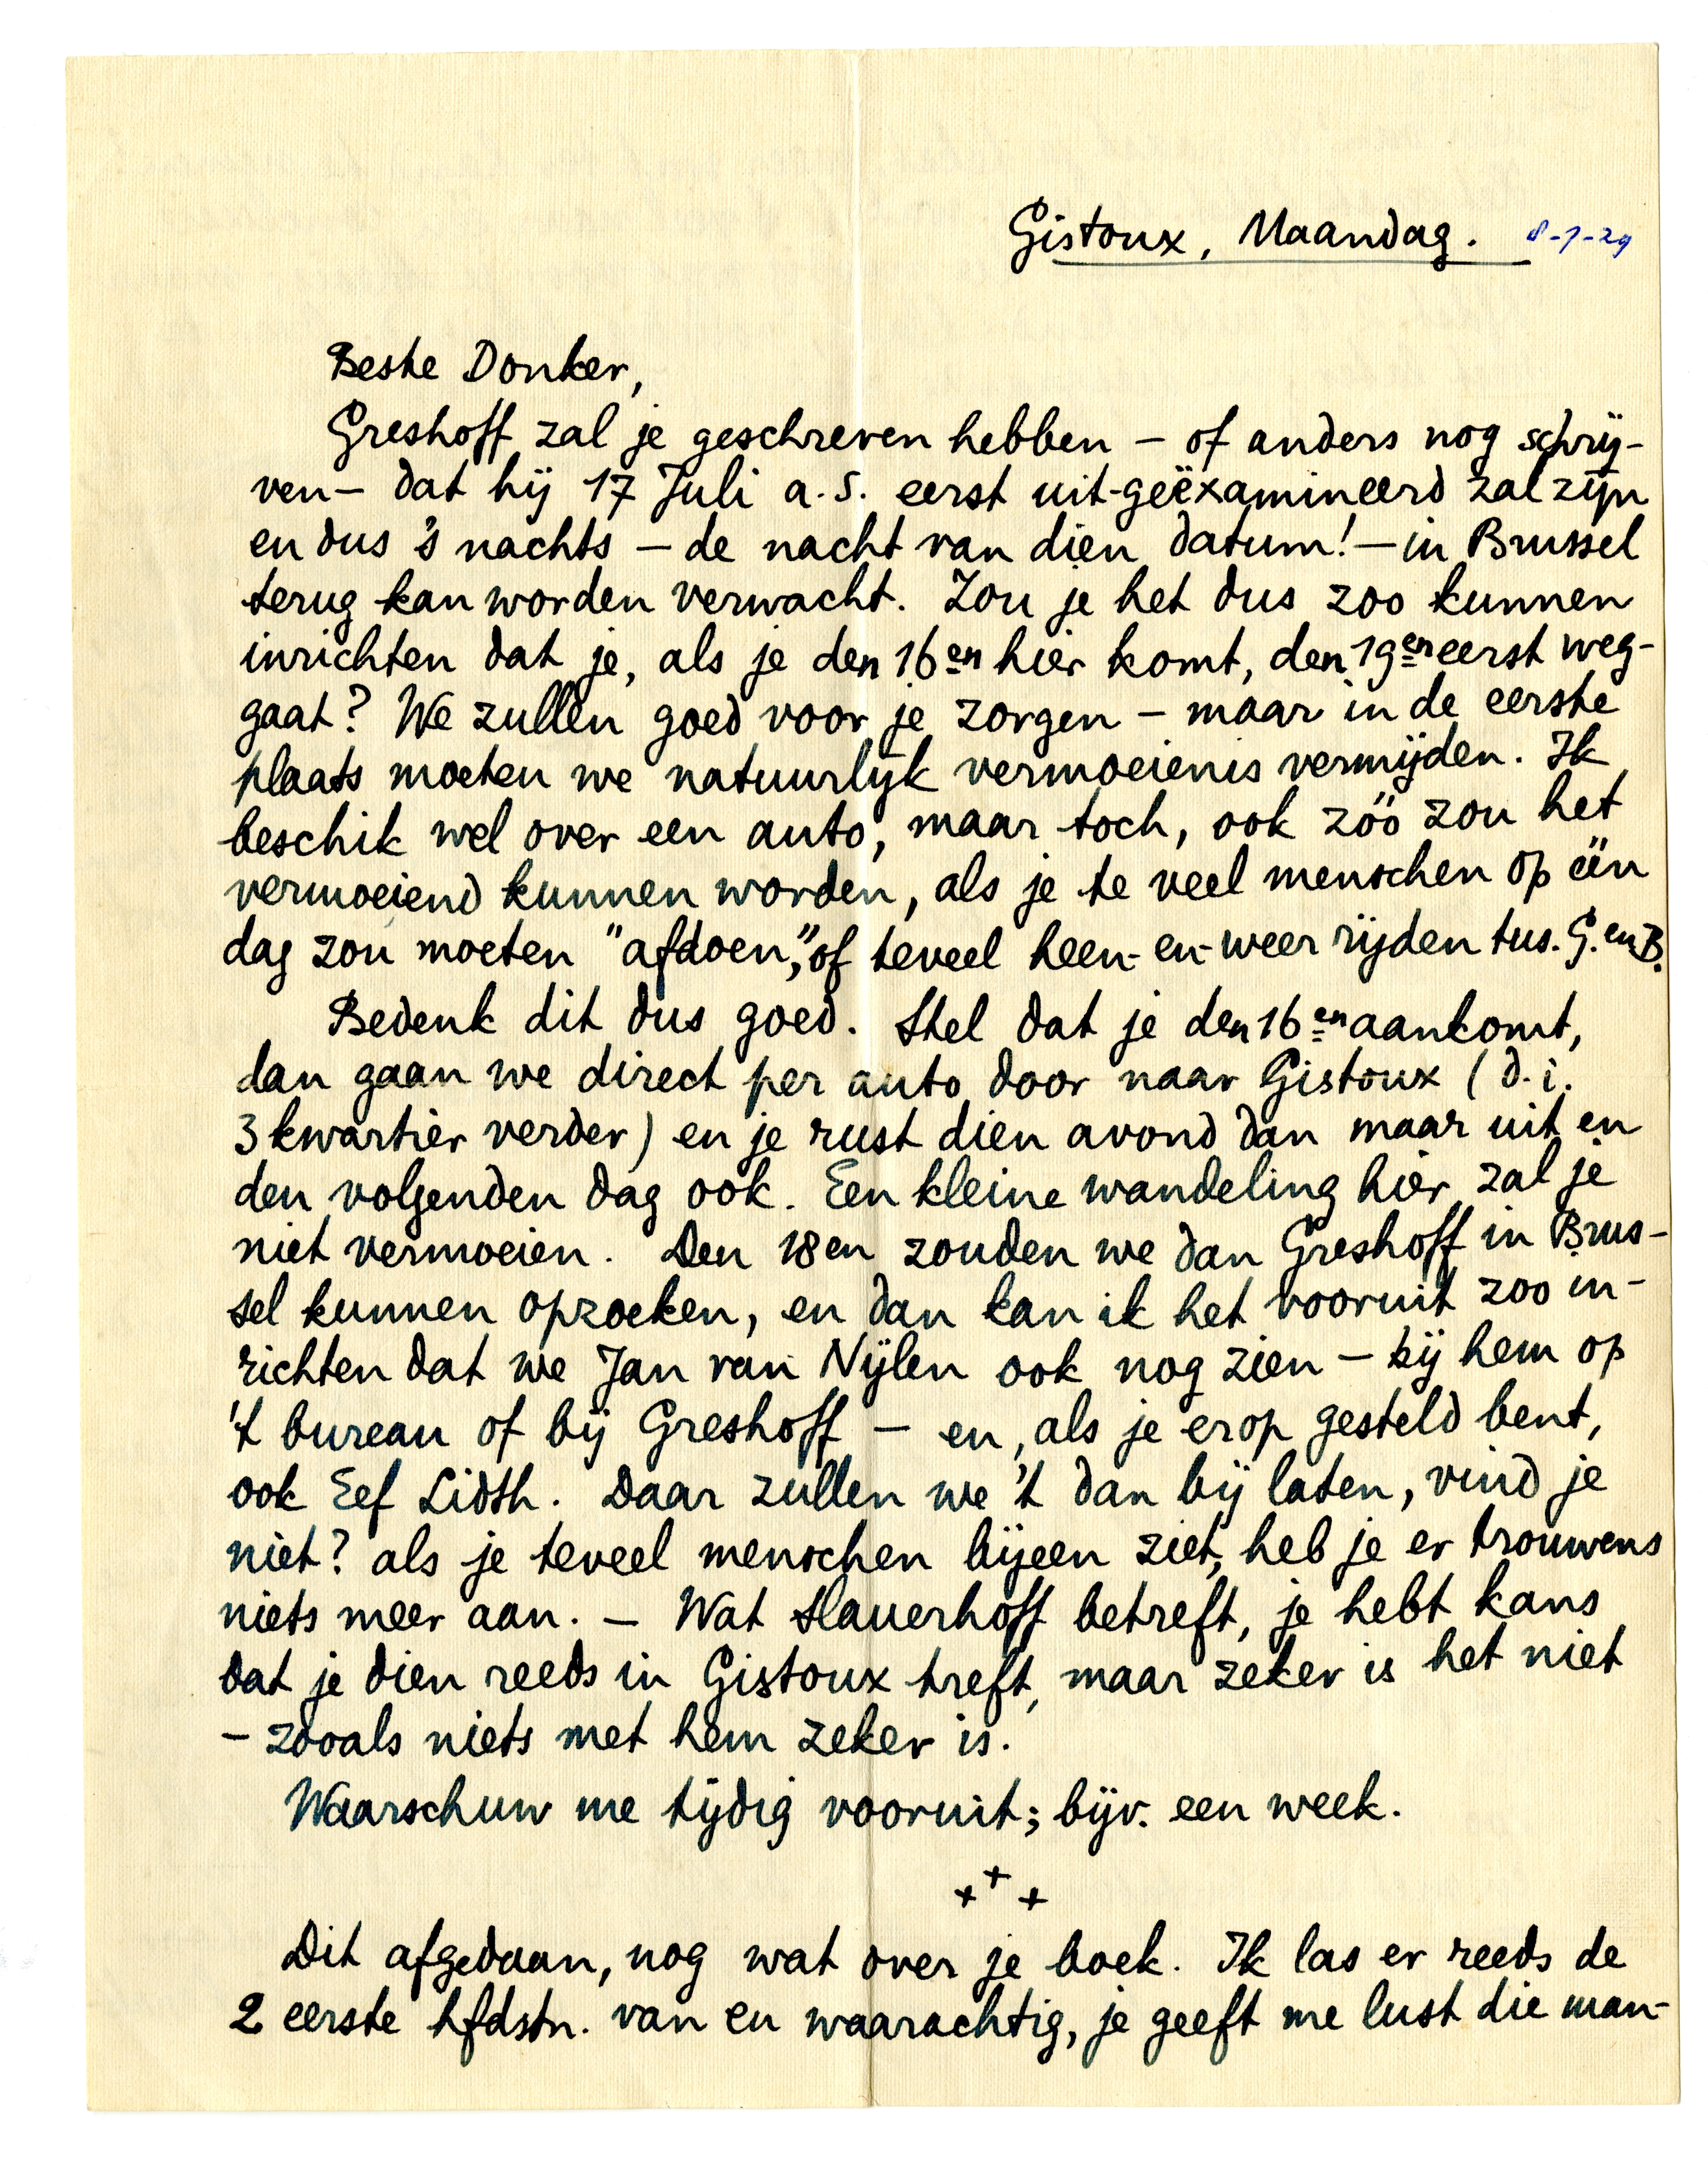 Gistoux, Maandag. 8-7-29
Beste Donker,
Greshoff zal je geschreven hebben – of anders nog schrij-
ven – dat hij 17 Juli a.s. eerst uit-geëxamineerd zal zijn
en dus 's nachts – de nacht van dien datum! – in Brussel
terug kan worden verwacht. Zou je het dus zoo kunnen
inrichten dat je, als je den 16en hier komt, den 19en eerst weg-
gaat? We zullen goed voor je zorgen – maar in de eerste
plaats moeten we natuurlijk vermoeienis vermijden. Ik
beschik wel over een auto, maar toch, ook zóó zou het
vermoeiend kunnen worden, als je te veel menschen op één
dag zou moeten "afdoen", of teveel heen- en- weer rijden tus. G. en B.
Bedenk dit dus goed. Stel dat je den 16en aankomt,
dan gaan we direct per auto door naar Gistoux (d.i.
3 kwartier verder) en je rust dien avond dan maar uit en
den volgenden dag ook. Een kleine wandeling hier zal je
niet vermoeien. Den 18en zouden we dan Greshoff in Brus-
sel kunnen opzoeken, en dan kan ik het vooruit zoo in-
richten dat we Jan van Nijlen ook nog zien – bij hem op
't bureau of bij Greshoff – en, als je erop gesteld bent,
ook Eef Lidth. Daar zullen we 't dan bij laten, vind je
niet? als je teveel menschen bijeen ziet, heb je er trouwens
niets meer aan. – Wat Slauerhoff betreft, je hebt kans
dat je dien reeds in Gistoux treft, maar zeker is het niet
– zooals niets met hem zeker is.
Waarschuw me tijdig vooruit; bijv. een week.
+ + +
Dit afgedaan, nog wat over je boek. Ik las er reeds de
2 eerste hfdstn. van en waarachtig, je geeft me lust die man-